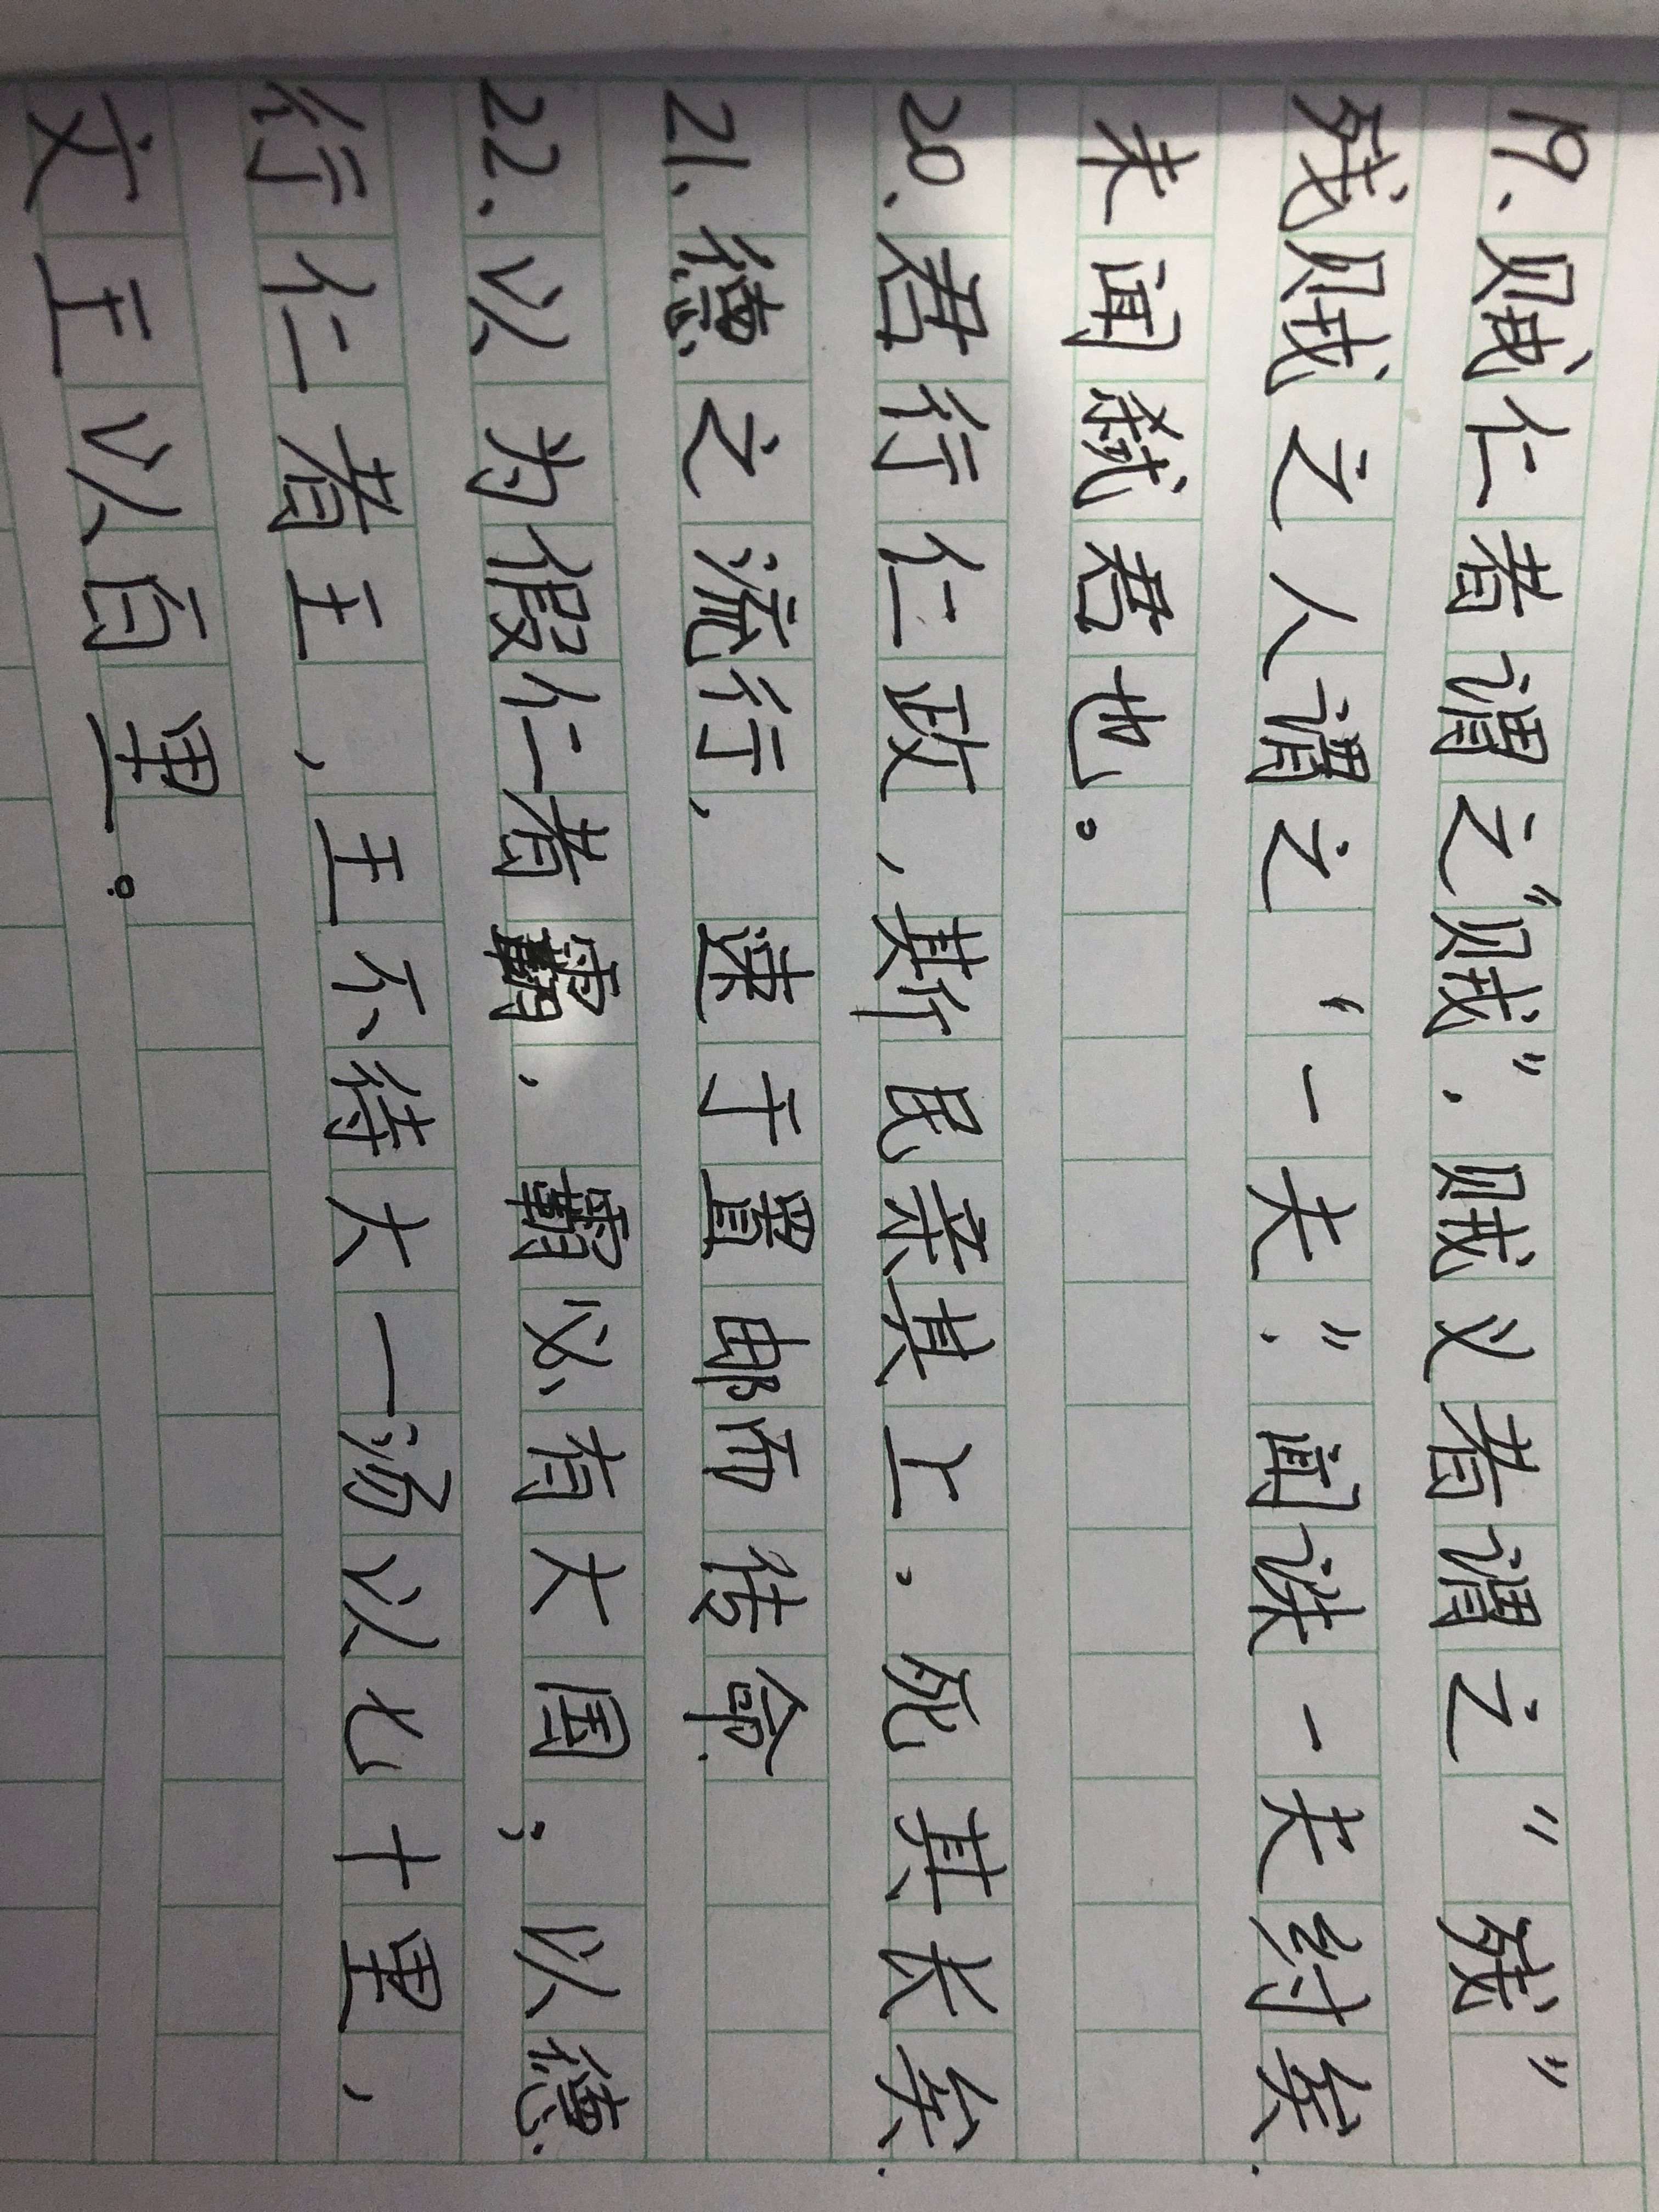 19.贼仁者谓之“贼”.贼义者谓之“残”
残贼之人谓之“一夫”.闻诛一夫纣矣.
未闻弑君也。
20.君行仁政,斯民亲其上.死其长矣.
21.德之流行,速于置邮而传命.
22.以为假仁者霸.霸必有大国;以德
行仁者王,王不待大一汤以七十里,
文王以百里。